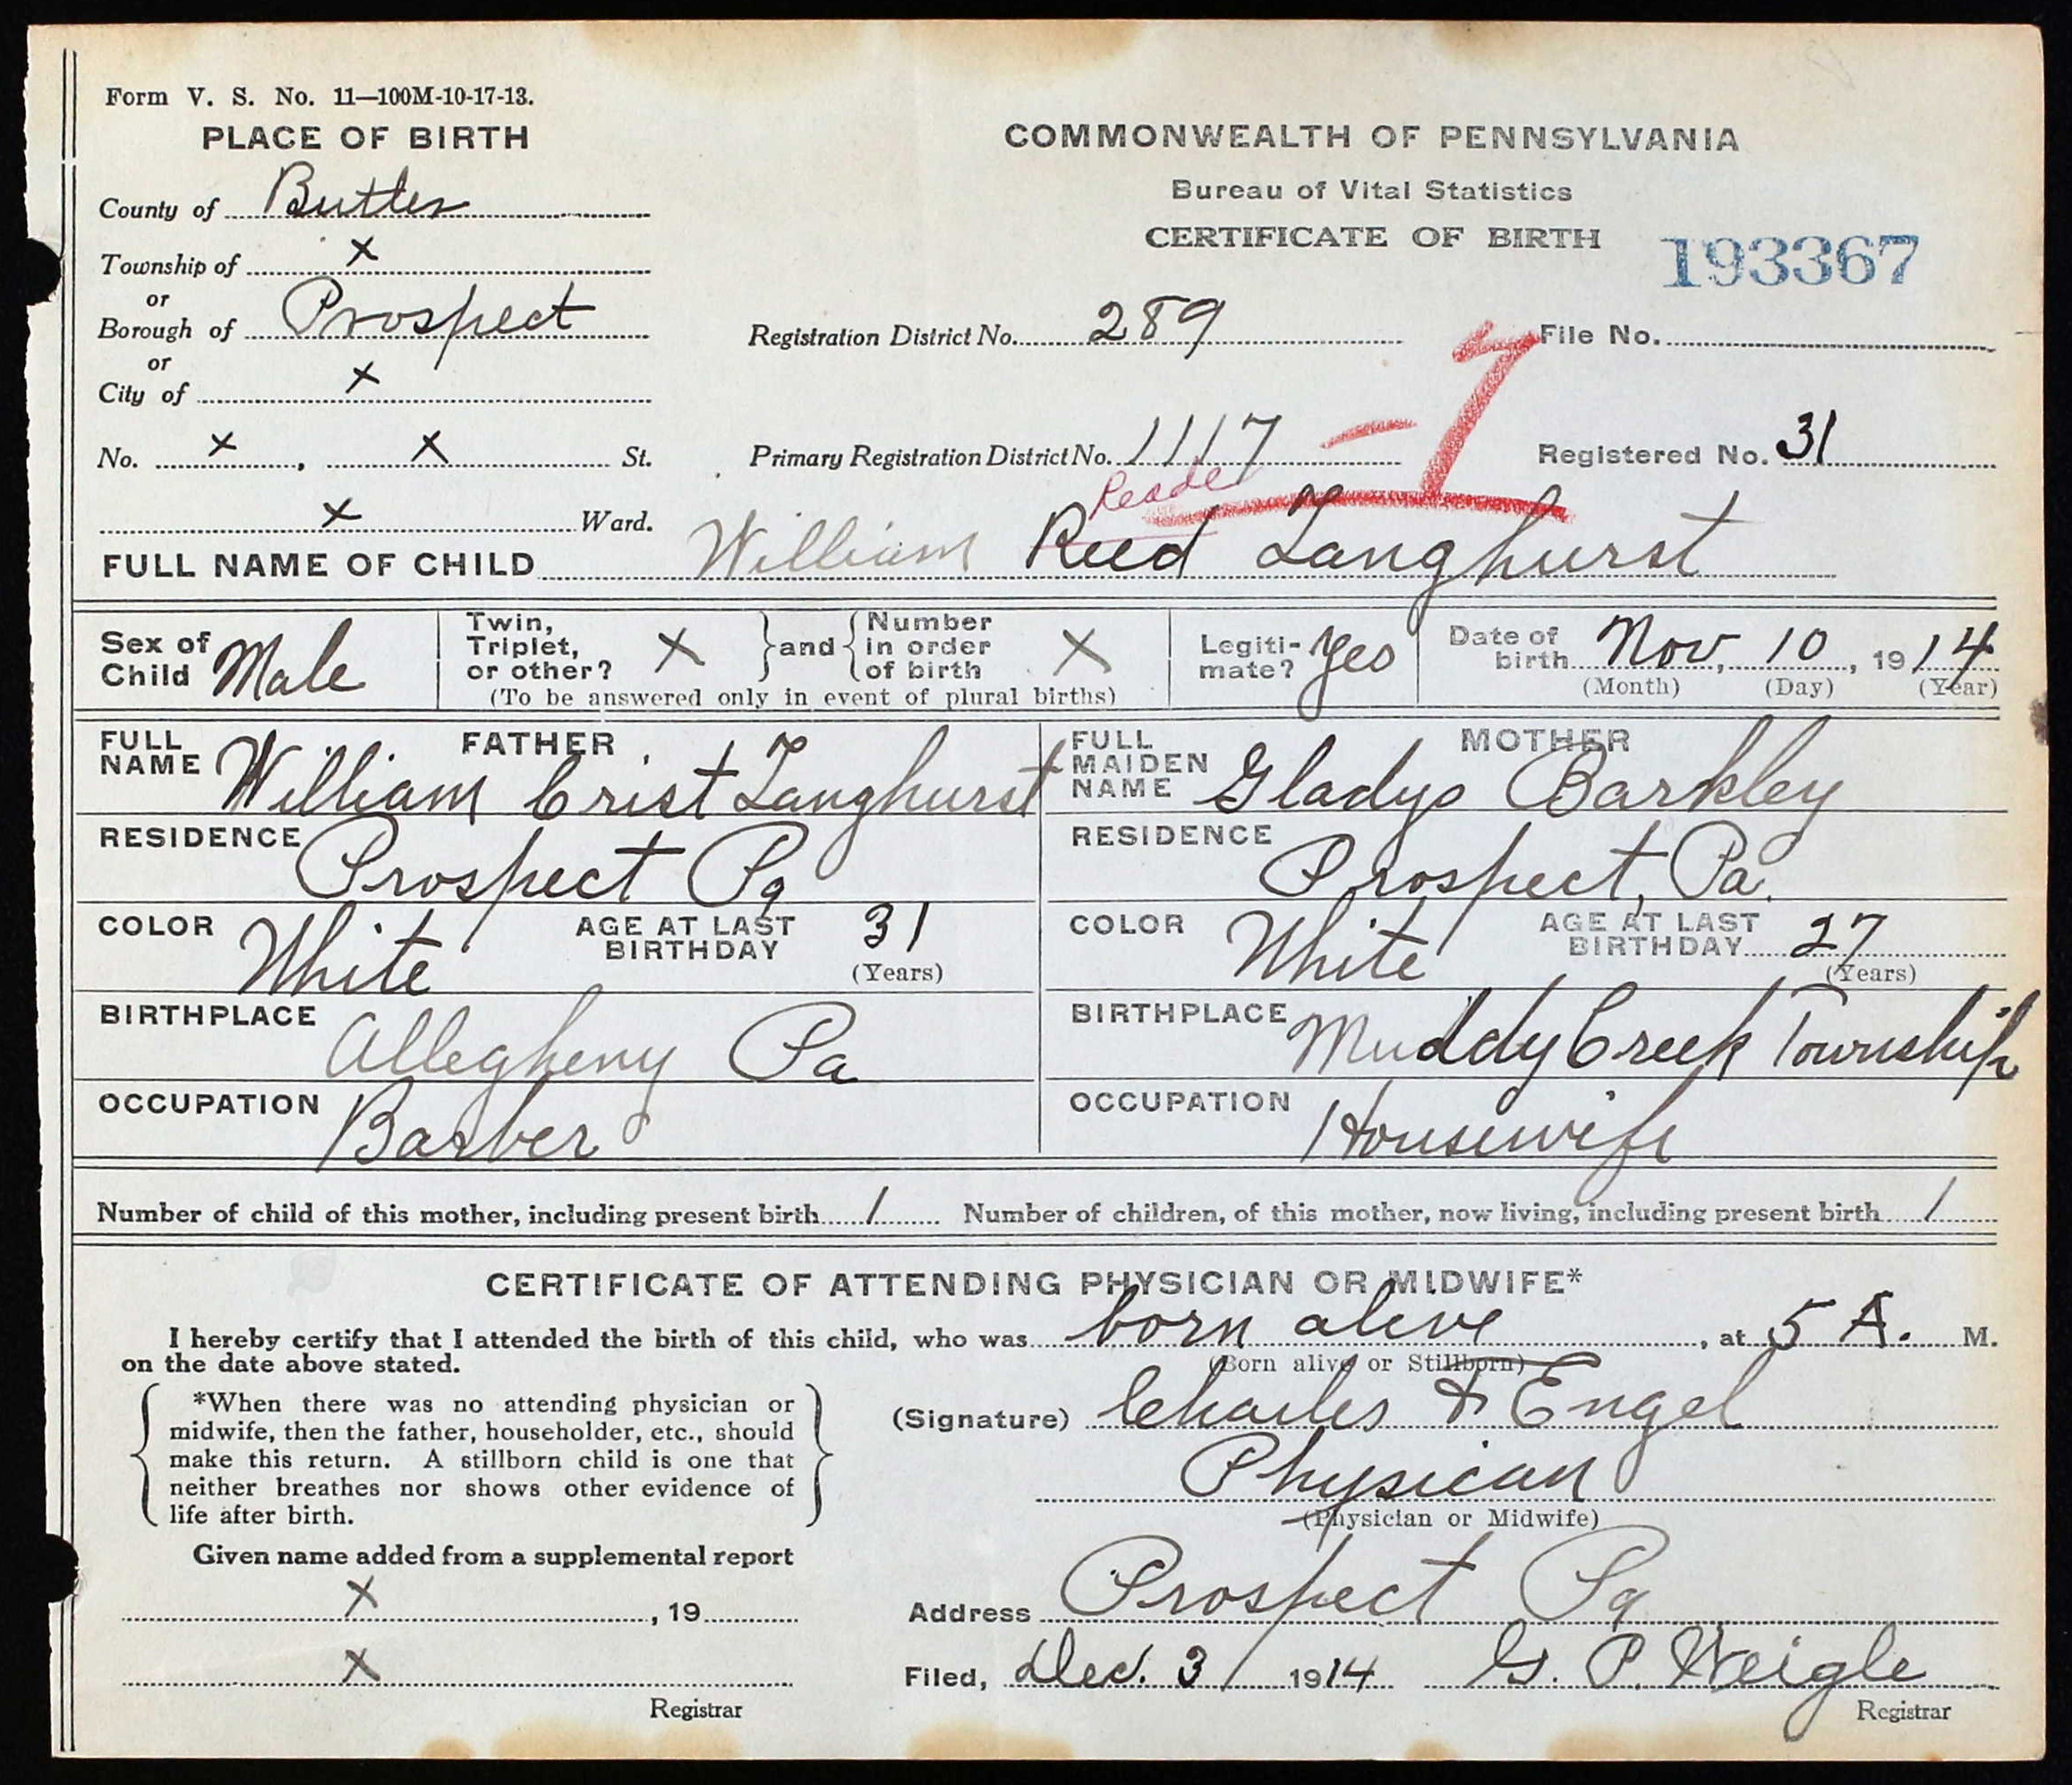 Form V. S. No. 11—100M-10-17-13.
PLACE OF BIRTH
County of Butler
Township of X
or
Borough of Prospect
or
City of X
No. X, X St.
X Ward.
COMMONWEALTH OF PENNSYLVANIA
Bureau of Vital Statistics
CERTIFICATE OF BIRTH
193367
Registration District No. 289
File No.
Primary Registration District No. 1117
-7
Registered No. 31
Reade
FULL NAME OF CHILD William Reed Langhurst
Sex of Child Male
Twin, Triplet, or other? X and Number in order of birth X
(To be answered only in event of plural births)
Legitimate? Yes
Date of birth Nov, 10, 1914
(Month) (Day) (Year)
FATHER
FULL NAME William Crist Langhurst
RESIDENCE Prospect Pa
COLOR White AGE AT LAST BIRTHDAY 31
(Years)
BIRTHPLACE Allegheny Pa
OCCUPATION Barber
MOTHER
FULL MAIDEN NAME Gladys Barkley
RESIDENCE Prospect, Pa.
COLOR White AGE AT LAST BIRTHDAY 27
(Years)
BIRTHPLACE Muddy Creek Township
OCCUPATION Housewife
Number of child of this mother, including present birth 1 Number of children, of this mother, now living, including present birth 1
CERTIFICATE OF ATTENDING PHYSICIAN OR MIDWIFE*
I hereby certify that I attended the birth of this child, who was born alive, at 5 A. M.
on the date above stated. (Born alive or Stillborn)
*When there was no attending physician or
midwife, then the father, householder, etc., should
make this return. A stillborn child is one that
neither breathes nor shows other evidence of
life after birth.
Given name added from a supplemental report
X, 19
X
Registrar
(Signature) Charles F Engel
Physican
(Physician or Midwife)
Address Prospect Pa
Filed, Dec. 3 1914 G. P. Weigle
Registrar